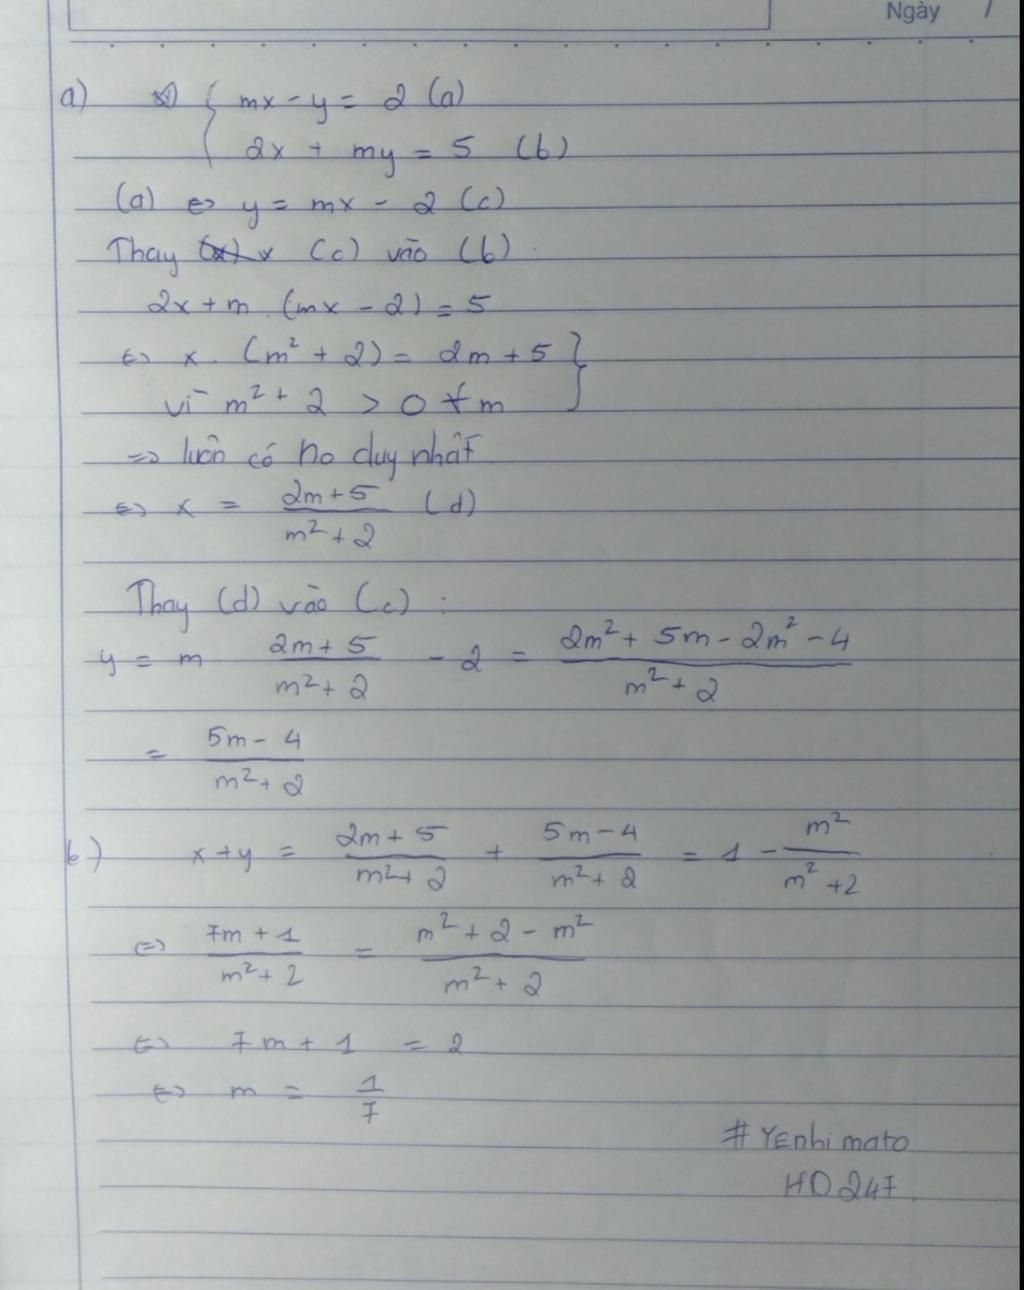 Ngày /
a) { mx - y = 2 (a)
2x + my = 5 (b)
(a) ⇔ y = mx - 2 (c)
Thay (c) vào (b).
2x + m.(mx - 2) = 5
⇔ x. (m² + 2) = 2m + 5 }
vì m² + 2 > 0 ∀m
=> luôn có no duy nhất
⇔ x = \frac{2m+5}{m²+2} (d)
Thay (d) vào (c) :
y = m \frac{2m+5}{m²+2} - 2 = \frac{2m² + 5m - 2m² - 4}{m²+2}
= \frac{5m-4}{m²+2}
b) x+y = \frac{2m+5}{m²+2} + \frac{5m-4}{m²+2} = 1 - \frac{m²}{m²+2}
⇔ \frac{7m+1}{m²+2} = \frac{m²+2-m²}{m²+2}
⇔ 7m + 1 = 2
⇔ m = \frac{1}{7}
# Yenhimato
HD247